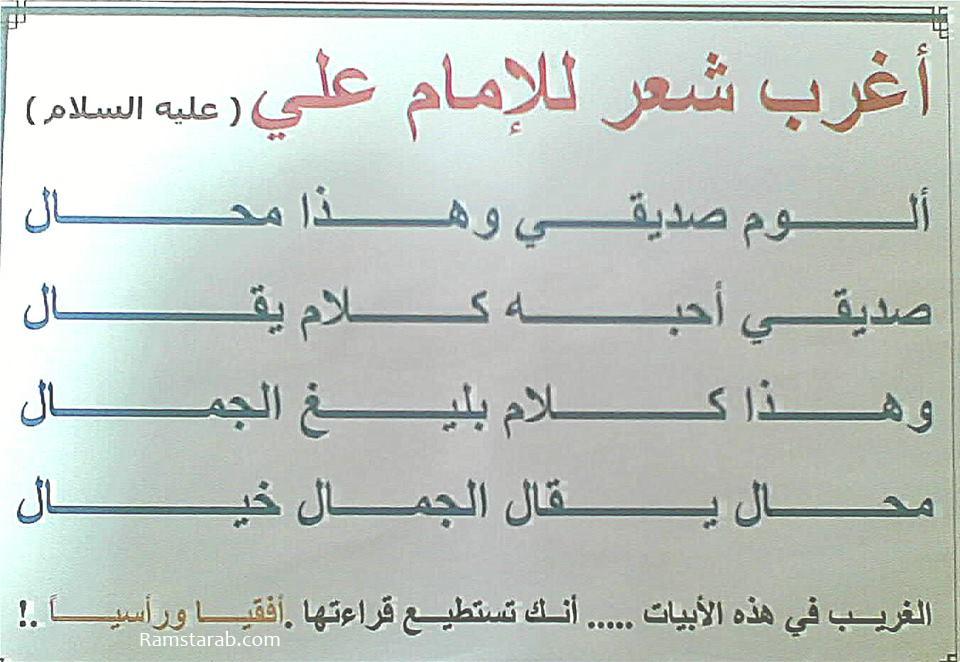 أغرب شعر للإمام علي ( عليه السلام )
ألـــوم صديقـــي وهـــذا محـــال
صديقـــي أحبـــه كـــلام يقـــال
وهـــذا كـــلام بليـــغ الجمـــال
محـــال يـــقال الجمـــال خيـــال
الغريـب في هذه الأبيات ..... أنـك تستطيـع قراءتها .أفقيـا ورأسيـاً .!
Ramstarab.com